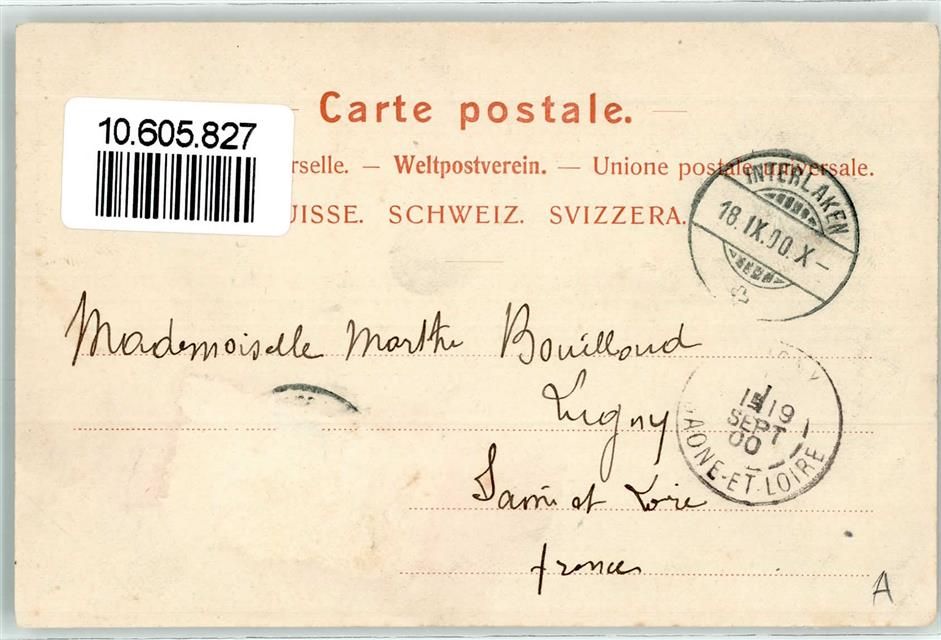 Carte postale.
10.605.827
rselle. — Weltpostverein. — Unione postale universale.
UISSE. SCHWEIZ. SVIZZERA.
INTERLAKEN
18.IX.00.X-
Mademoiselle Marthe Bouilloud
Lugny
Saône et Loire
France
19
SEPT
00
SAONE-ET-LOIRE
A